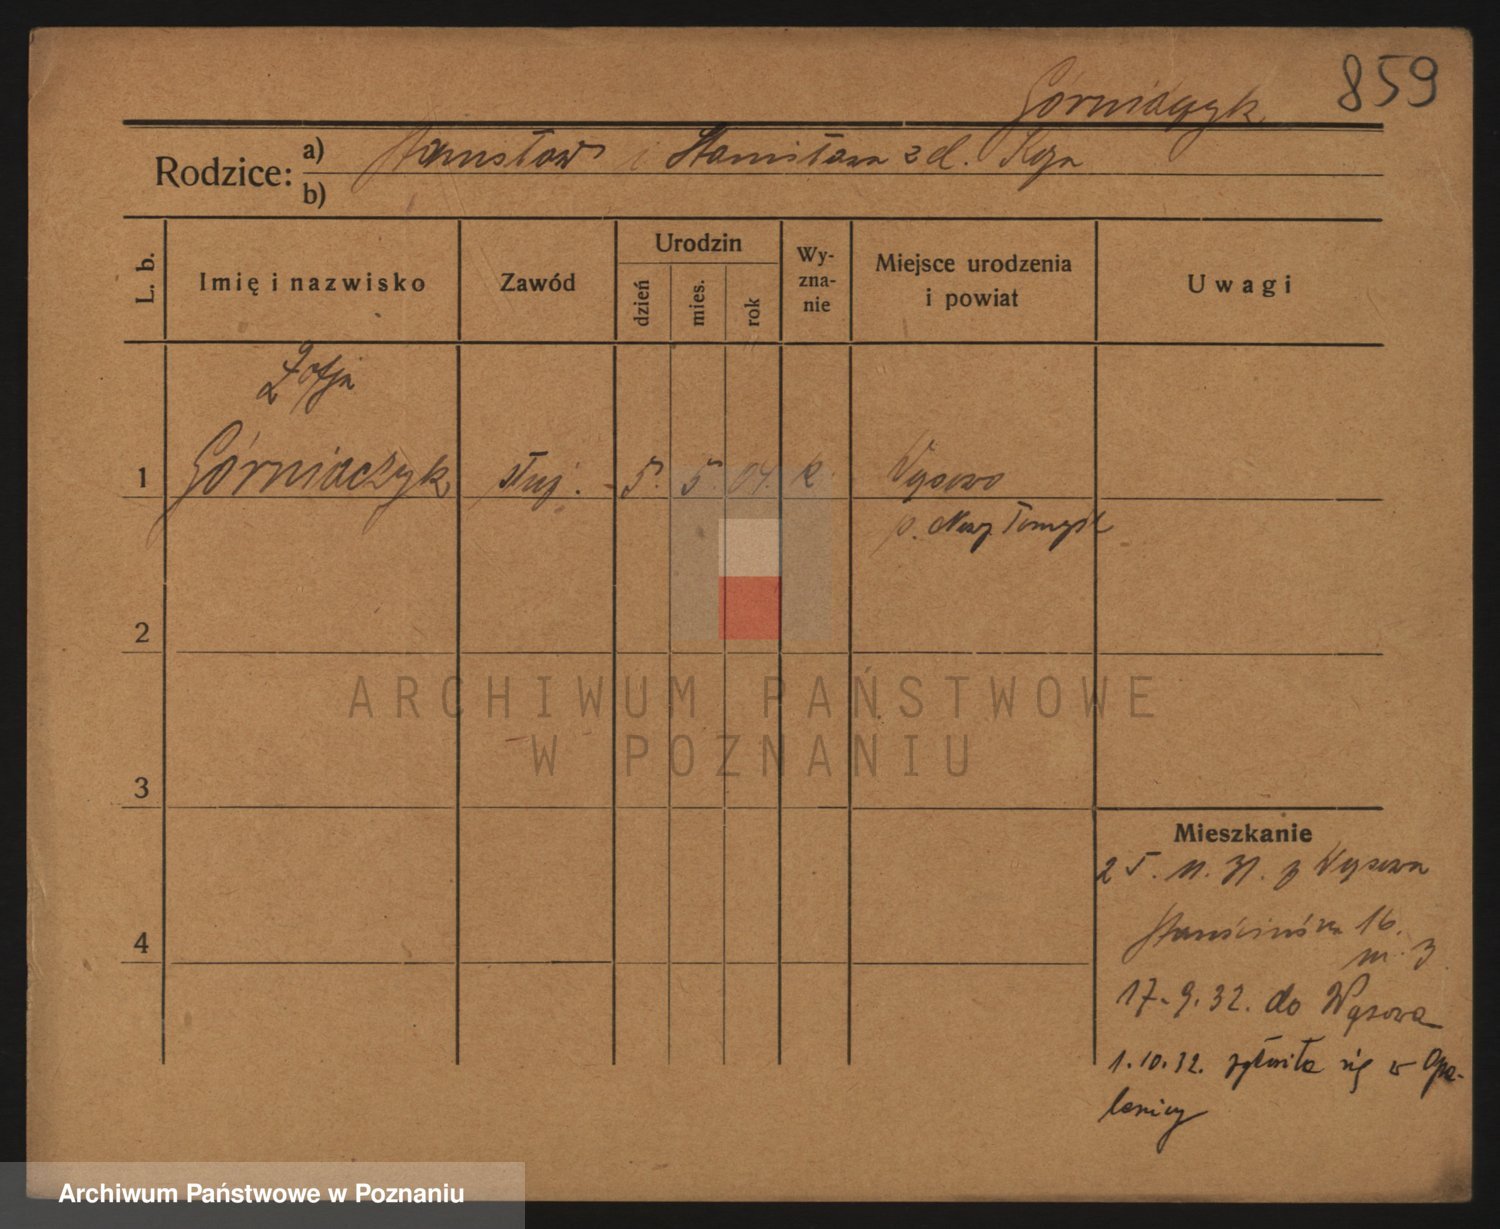 859
Górniaczyk
Rodzice: a) Stanisław i Stanisława z d. Koza
b)
L. b.
Imię i nazwisko
Zawód
Urodzin
dzień
mies.
rok
Wy-
zna-
nie
Miejsce urodzenia
i powiat
Uwagi
Zofja
1 Górniaczyk służ. 5. 5. 04. k Wąsowo
p. Nowy Tomyśl
2
3
4
ARCHIWUM PAŃSTWOWE
W POZNANIU
Mieszkanie
25. 11. 31. z Wąsowa
16.
m. 3.
17.9.32. do Wąsowa
1.10.32. zgłosiła się w Opa-
lenicy
Archiwum Państwowe w Poznaniu